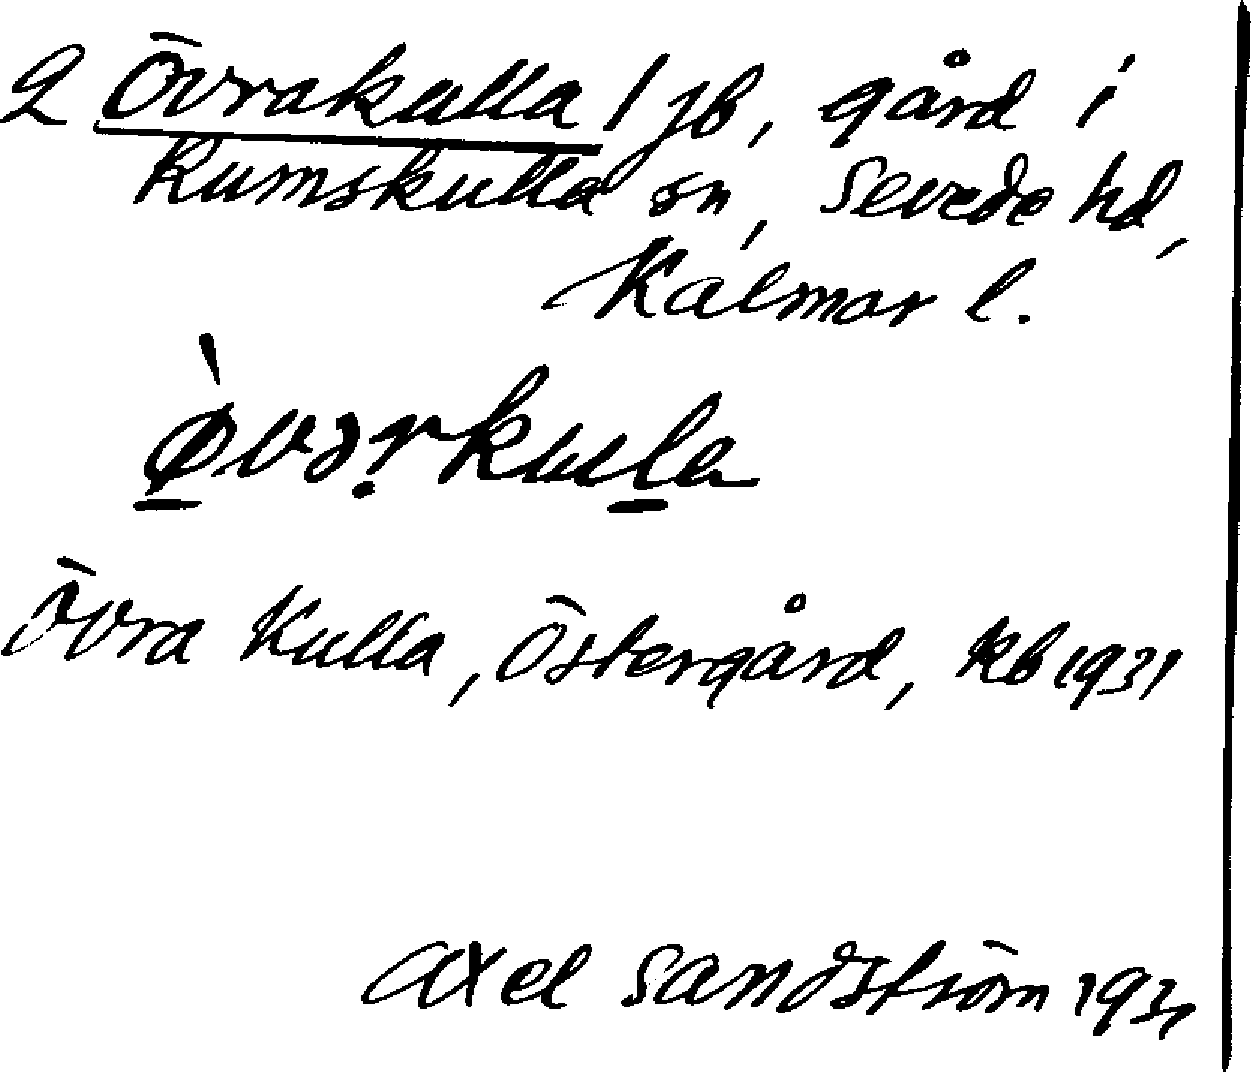 2 Övrakulla / jb, gård i
Rumskulla sn, Sevede hd,
Kalmar l.
ø̀vərkula
Övra Kulla, Östergård, kb 1931
Axel Sandström 1931